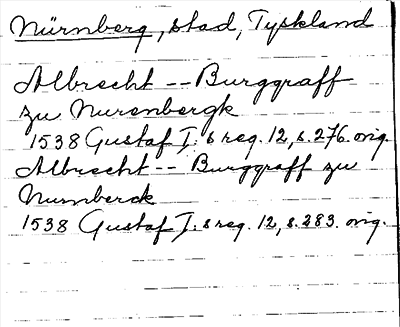 Nürnberg, stad, Tyskland
Albrecht -- Burggraff
zu Nurenbergk
1538 Gustaf I:s reg. 12, s. 276. orig.
Albrecht -- Burggraff zu
Nurnberck
1538 Gustaf I:s reg. 12, s. 283. orig.